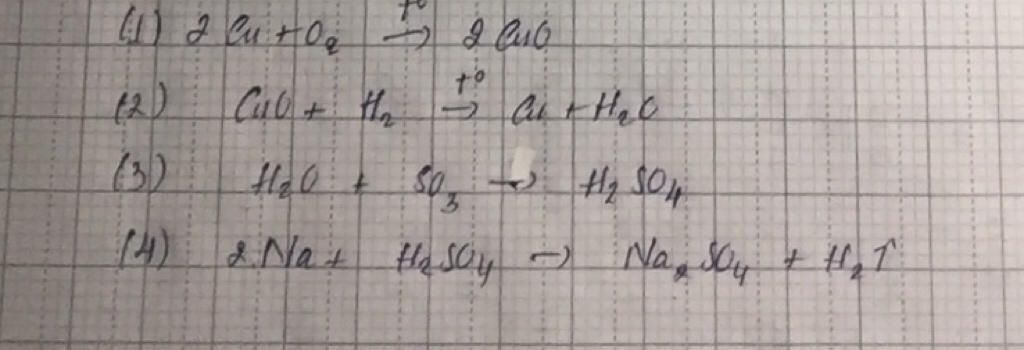 (1) 2 Cu + O₂ →t° 2 CuO
(2) CuO + H₂ →t° Cu + H₂O
(3) H₂O + SO₃ → H₂SO₄
(4) 2 Na + H₂SO₄ → Na₂SO₄ + H₂↑